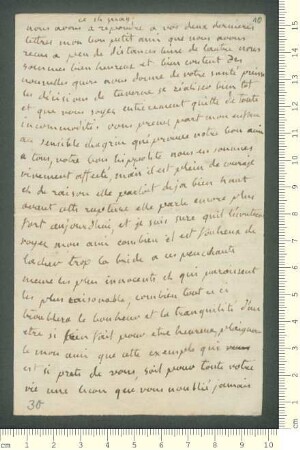 ce 16 may
nous avons a repondre a vos deux dernieres
lettres mon bon petit ami que nous avons
recu a peu de distances lune de lautre nous
sommes bien heureux et bien content des
nouvelles que vous donne de votre santé
les decisions de se realise bien tot
et que vous soyez entierement quitte de toute
incommodité vous prenez part mon enfant
au sensible chagrin qui eprouve notre bon ami
a tous, votre bon hippolite nous en sommes
vivement affecté, mais il est plein de courage
et de raison elle parloit deja bien haut
avant cette rupture elle parle encore plus
fort aujourdhui, et je suis sure quil lecoutera
voyez mon ami combien il est facheux de
lacher trop la bride a ces penchants
meme les plus innocents et qui paroissent
les plus raisonable, combien tout ceci
troublera le bonheur et la tranquilité dun
etre si bien fait pour etre heureux, plaignons
le mon ami que cette exemple qui
est si prets de vous, soit pour toute votre
vie une lecon que vous noublié jamais
30
cm 1 2 3 4 5 6 7 8 9 10